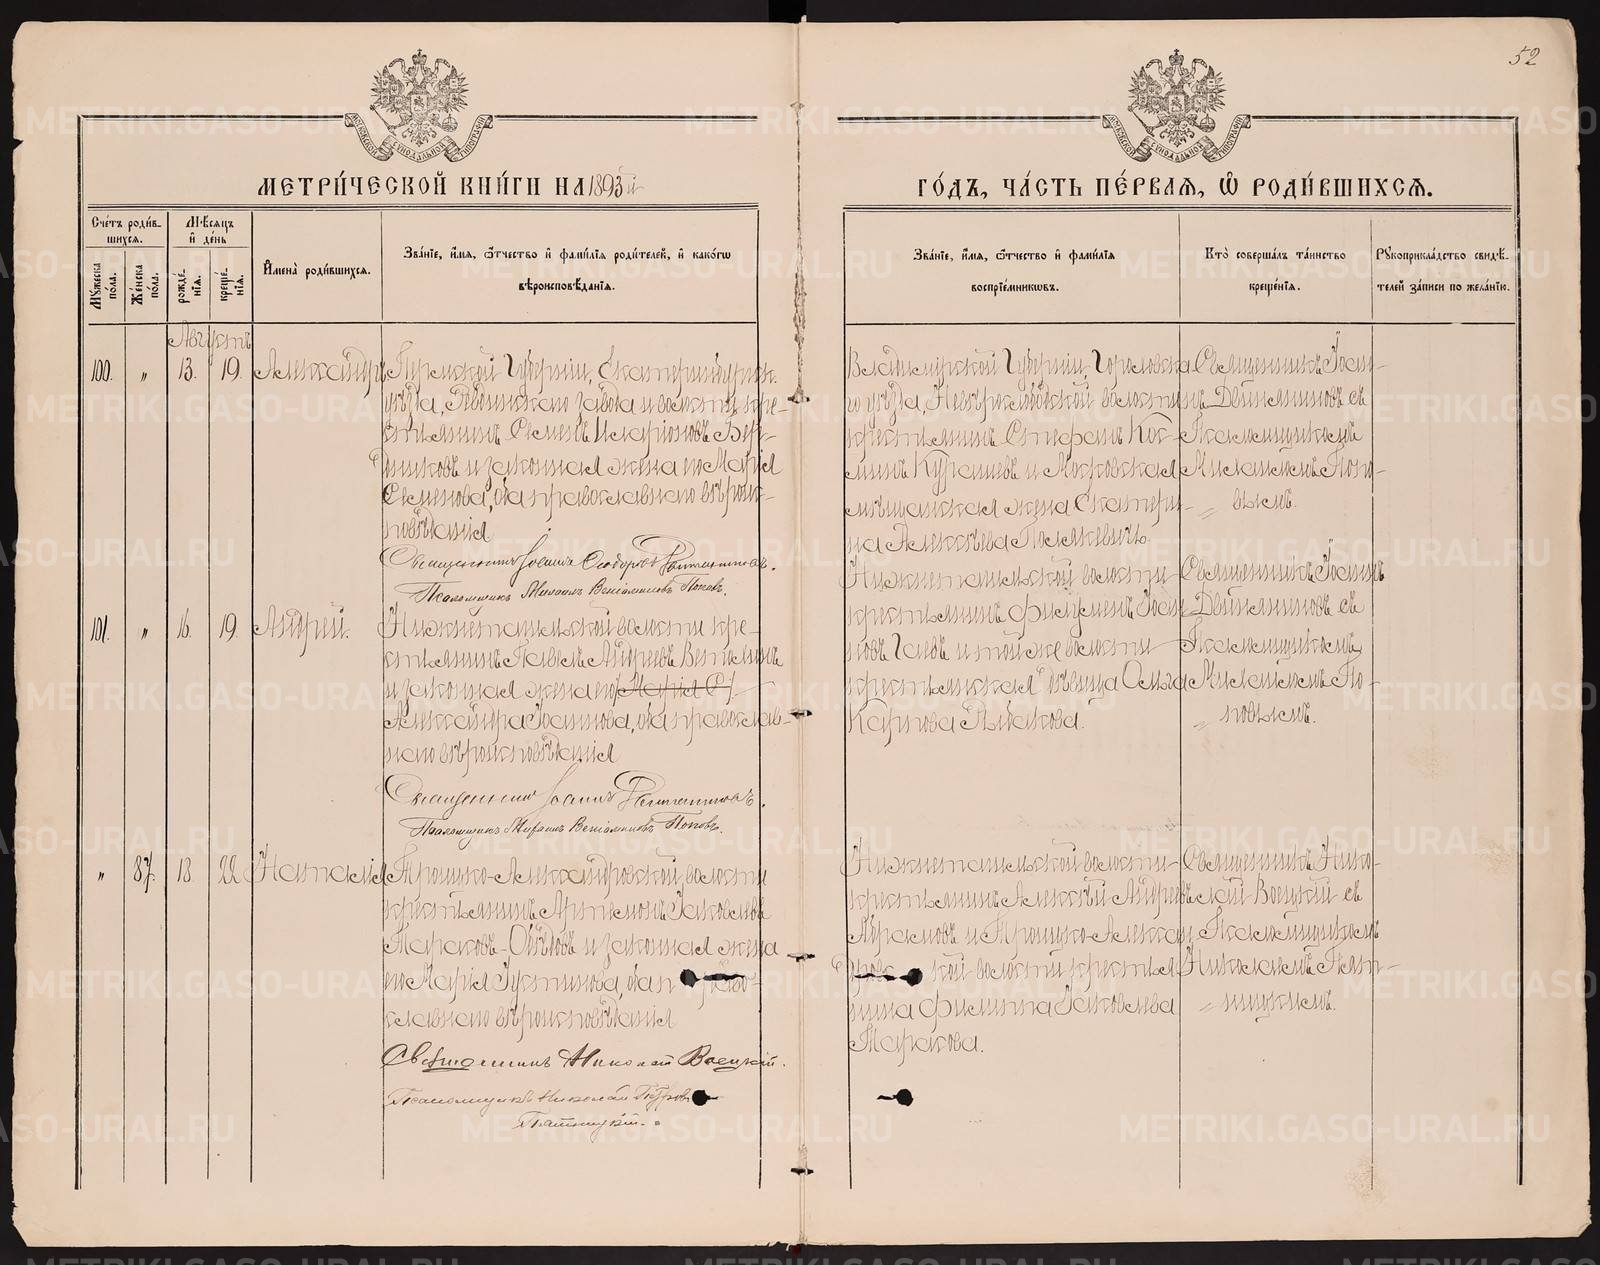 52
МЕТРИ́ЧЕСКОЙ КНИ́ГИ НА 1893й
ГО́ДЪ, ЧА́СТЬ ПЕ́РВАЯ, Ѿ РОДИ́ВШИХСЯ.
Сче́тъ роди́в-
шихся.
Мꙋжеска по́ла.
Же́нска по́ла.
Мѣ́сяцъ и де́нь
рожде́нія.
креще́нія.
Имена̀ роди́вшихся.
Зва́ніе, и́мя, ѻ́тчество и фами́лія роди́телей, и како́гѡ
вѣроисповѣ́данія.
Зва́ніе, и́мя, ѻ́тчество и фами́лія
воспріе́мниковъ.
Кто̀ соверша́лъ та́инство
креще́нія.
Рꙋкоприкла́дство свидѣ́-
телей за́писи по жела́нію.
Августъ
100. " 13. 19. Александръ
Пермской Губерніи, Екатеринбургск.
уѣзда, Ревдинскаго завода и волости кре-
стьянинъ Семенъ Иларіоновъ
и законная жена его Марія
Семенова, оба православнаго вѣроис-
повѣданія
Священникъ Іоаннъ
Псаломщикъ Михаилъ Веніаминовъ Поповъ.
Владимірской Губерніи, Гороховска-
го уѣзда, волости
крестьянинъ Стефанъ Кос-
минъ и Московская
мѣщанская жена Екатери-
на Алексѣева
Священникъ Іоан-
нъ съ
Псаломщикомъ
Михаиломъ Попо-
" вымъ.
101. " 16. 19. Андрей.
Нижнетагильской волости кре-
стьянинъ Павелъ Андреевъ
и законная жена его (Марія С)
Александра Іоаннова, оба православ-
наго вѣроисповѣданія
Священникъ Іоаннъ
Псаломщикъ Михаилъ Веніаминовъ Поповъ.
Нижнетагильской волости
крестьянинъ Филуменъ Іоан-
новъ и той же волости
крестьянская дѣвица Ольга
Карпова
Священникъ Іоаннъ
съ
Псаломщикомъ
Михаиломъ По-
" повымъ.
" 87. 18 22 Наталія
Троицко-Александровской волости
крестьянинъ Артемонъ Яковлевъ
Тараковъ-Обѣдовъ и законная жена
его Марія Іустинова, оба право-
славнаго вѣроисповѣданія
Священникъ Николай
Псаломщикъ Николай Петровъ
Пятницкій.
Нижнетагильской волости
крестьянинъ Алексѣй Андреевъ
Абрамовъ и Троицко-Алексан
дровской волости крестья
нина Филиппа Яковлева
Таракова.
Священникъ Нико-
лай съ
Псаломщикомъ
Николаемъ Пят-
" ницкимъ.
METRIKI.GASO-URAL.RU